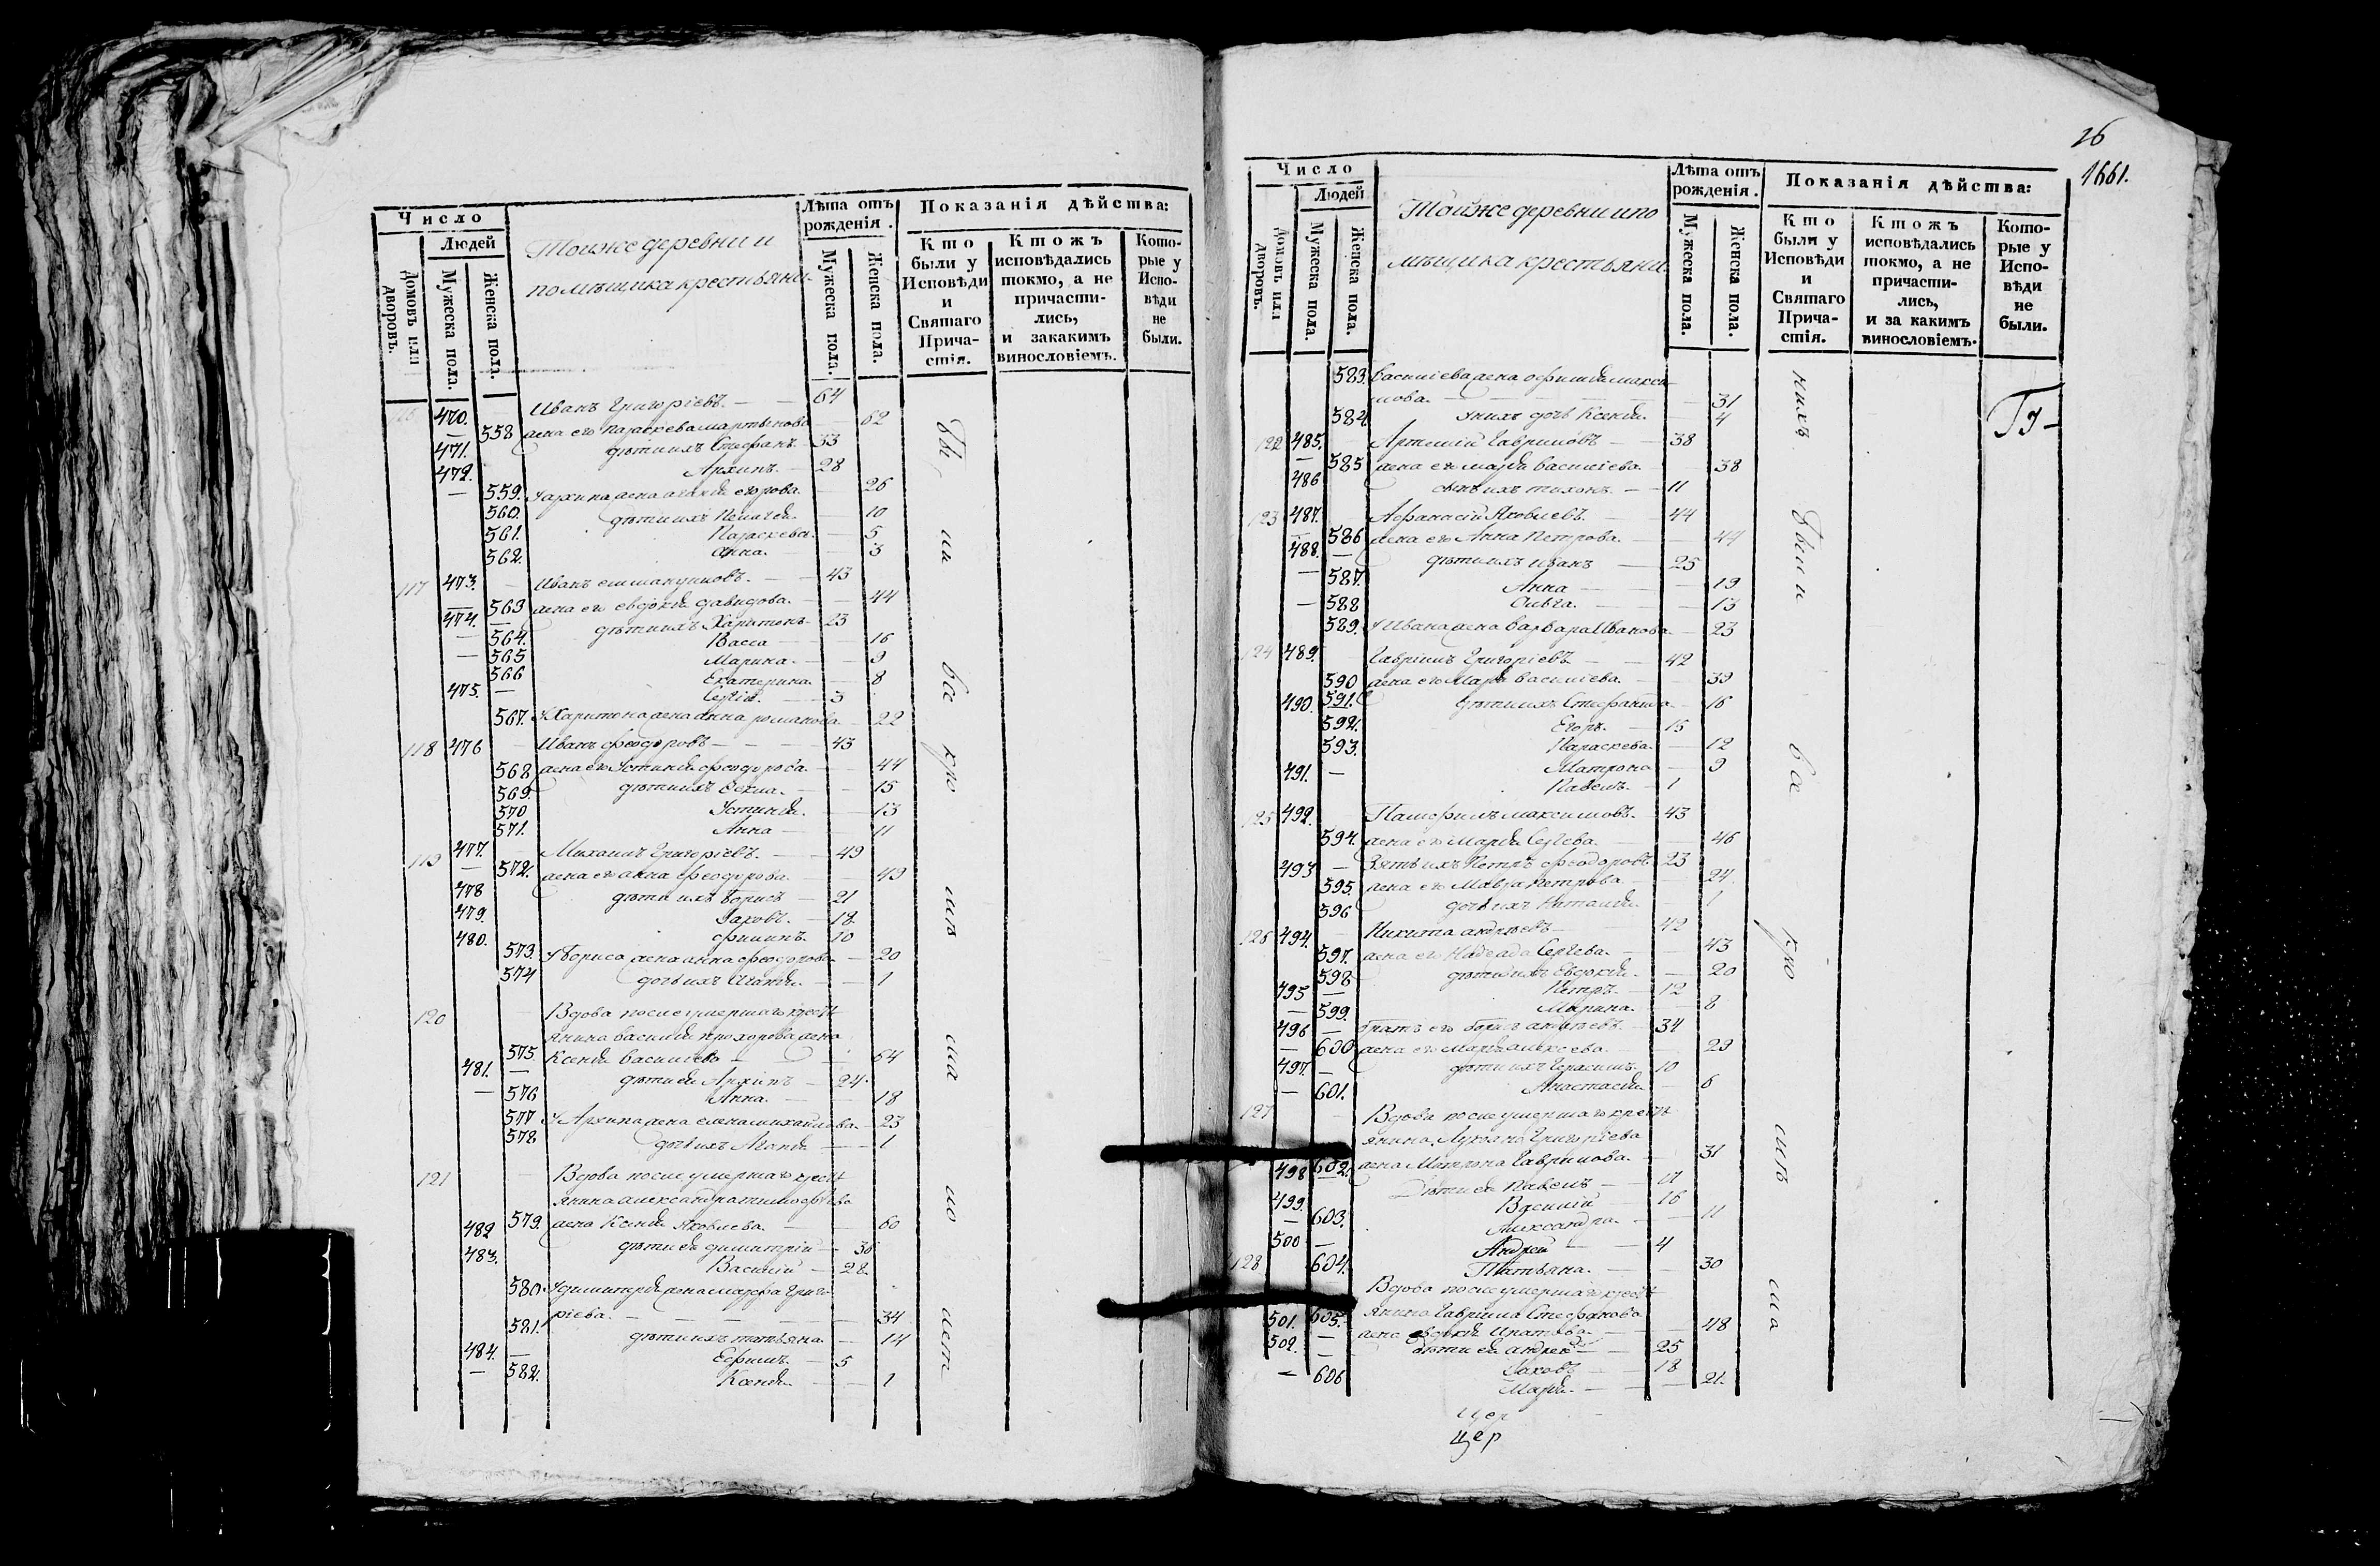 Число
Людей
Домовъ или дворовъ.
Мужеска пола.
Женска пола.
Тойже деревни и
помѣщика крестьяни
Лѣта отъ рожденія.
Мужеска пола.
Женска пола.
Показанія дѣйства:
Кто были у Исповѣди и Святаго Причастія.
Ктожъ исповѣдались токмо, а не причастились, и закакимъ винословіемъ.
Которые у Исповѣди не были.
470. Иванъ Григоріевъ. 64
558 жена его Параскева Мартынова 62
471. дѣти ихъ Стефанъ 33
472. Архипъ. 28
559. У Архипа жена Агафія Егорова. 26
560. дѣти ихъ Пелагія 10
561. Параскева. 5
562. Анна. 3
117 473. Иванъ 43
563 жена его Евдокія Давидова. 44
474. дѣти ихъ Харитонъ 23
564. Васса 16
565 Марина. 9
566 Екатерина. 8
475. Сергій. 3
567. У Харитона жена Анна Романова 22
118 476 Иванъ Феодоровъ 43
568 жена его Устинія Феодорова. 44
569. дѣти ихъ Фекла. 15
570 Устинія. 13
571. Анна 11
119 477. Михаилъ Григоріевъ. 49
572. жена его Анна Феодорова 49
478 дѣти ихъ Борисъ 21
479. Іаковъ. 18
480. Филипъ. 10
573. У Бориса жена Анна Феодорова 20
574 дочь ихъ Агафія. 1
120 Вдова после умершаго кресть
янина Василія Прохорова жена
575. Ксенія Василіева 64
481. дѣти ея Архипъ 24.
576 Анна. 18
577 У Архипа жена Елена Михайлова. 23
578 дочь ихъ Агафія 1
121 Вдова после умершаго кресть
янина Александра Тимофѣева
579. жена Ксенія Яковлева. 60
482 дѣти ея Димитрій 36
483. Василій 28.
580 У Димитрія жена Марфа Григо
ріева. 34
581. дѣти ихъ Татьяна 14
484. Ефимъ. 5
582. Ксенія. 1
26
1661.
Число
Людей
Домовъ или дворовъ.
Мужеска пола.
Женска пола.
Тойже деревни и по
мѣщика крестьяни
Лѣта отъ рожденія.
Мужеска пола.
Женска пола.
Показанія дѣйства:
Кто были у Исповѣди и Святаго Причастія.
Ктожъ исповѣдались токмо, а не причастились, и за какимъ винословіемъ.
Которые у Исповѣди не были.
583. Василіева жена Офимія Макси
мова. 31
584. У нихъ дочь Ксенія. 4
122 485. Артемій Гавриловъ 38
585 жена его Марія Василіева. 38
486 сынъ ихъ Тихонъ. 11
123 487. Афанасій Яковлевъ. 44
586 жена его Анна Петрова. 44
488. дѣти ихъ Иванъ 25
587. Анна 19
588 Ольга. 13
589. У Ивана жена Варвара Иванова. 23
124 489. Гавріилъ Григоріевъ 42
590 жена его Марія Василіева. 39
591. дѣти ихъ 16
490. 592. Егоръ. 15
593. Параскева. 12
Матрона 9
491. Павелъ. 1
125 492. Памфилъ Максимовъ. 43
594. жена его Марія Сергева. 46
493 Зять ихъ Петръ Феодоровъ. 23
595. жена его Мавра Петрова 24.
596 дочь ихъ Наталія. 1
126 494. Никита Андреевъ 42
597. жена его Надежда Сергева. 43
598 дѣти ихъ Евдокія. 20
495 Петръ. 12
599. Марина. 8
496 братъ его Борисъ Андреевъ 34
600 жена его Марія Алексеева. 29
497. дѣти ихъ Герасимъ. 10
601. Анастасія 6
127 Вдова после умершаго кресть
янина Григоріева
602. жена Матрона Гаврилова. 31
498 Дѣти ея Павелъ
499. Василій 16
603. Александра. 11
500 Андрей 4
604. Татьяна. 30
128 Вдова после умершаго кресть
янина Гавріила Стефанова
605. жена Евдокія Ипатова. 48
501. дѣти ея Андрей 25
502. Іаковъ 18
606 Марія. 21.
Цер
Цер